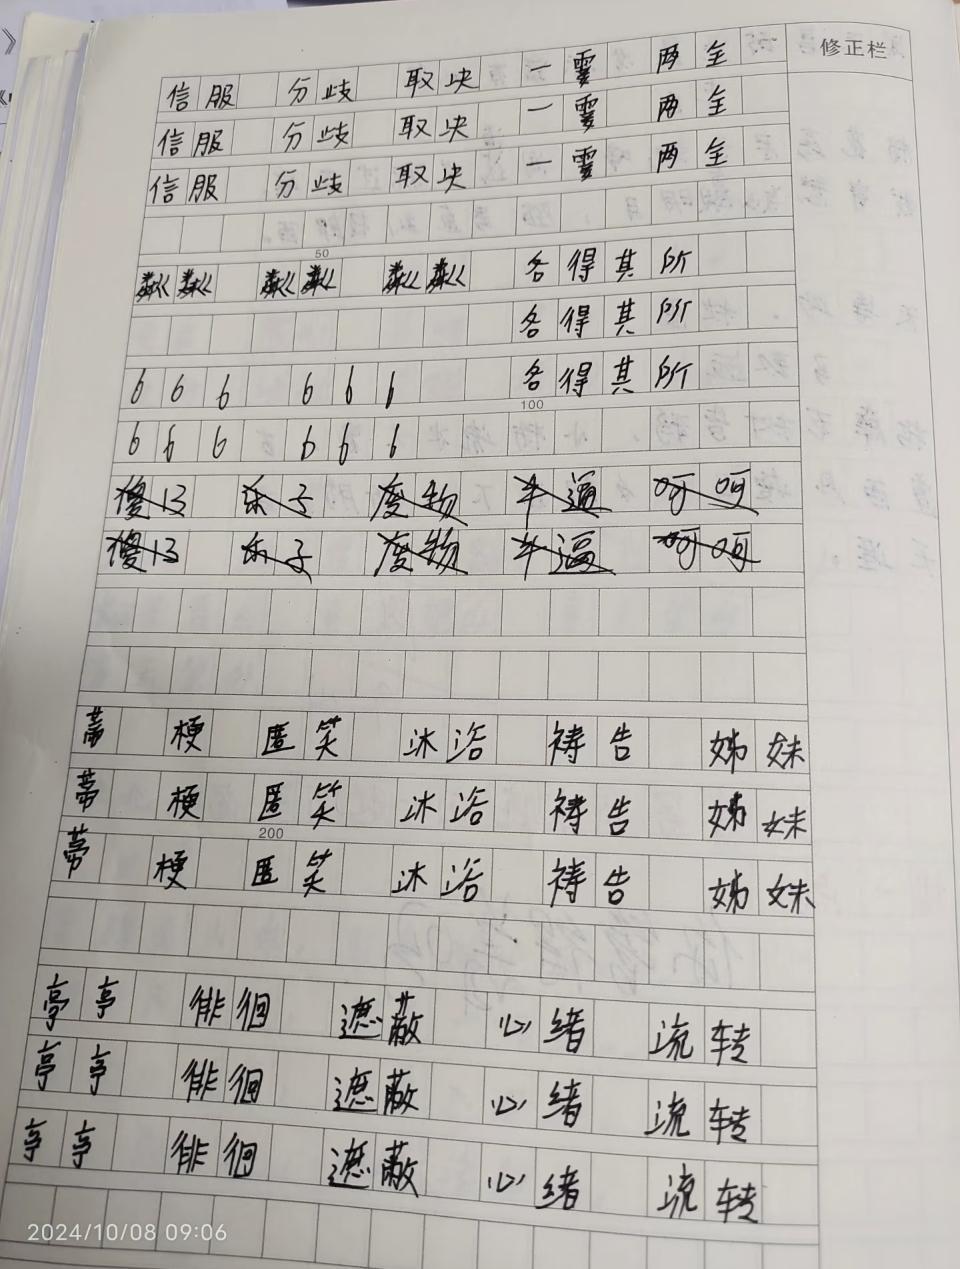 修正栏
信服 分歧 取决 一霎 两全
信服 分歧 取决 一霎 两全
信服 分歧 取决 一霎 两全
50
粼粼 粼粼 粼粼 各得其所
各得其所
6 6 6 6 6 6 各得其所
100
6 6 6 6 6 6
傻13 乐子 废物 牛逼 呵呵
傻13 乐子 废物 牛逼 呵呵
蒂 梗 匿笑 沐浴 祷告 姊妹
蒂 梗 匿笑 沐浴 祷告 姊妹
200
蒂 梗 匿笑 沐浴 祷告 姊妹
亭亭 徘徊 遮蔽 心绪 流转
亭亭 徘徊 遮蔽 心绪 流转
亭亭 徘徊 遮蔽 心绪 流转
2024/10/08 09:06